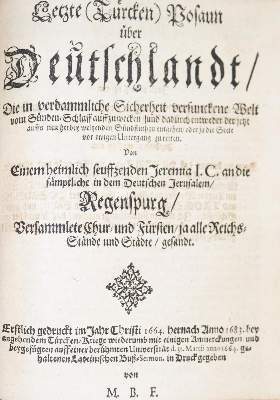 Letzte (Türcken) Posaun
über
Deutschlandt /
Die in verdammliche Sicherheit versunckene Welt
vom Sünden-Schlaff auffzuwecken / und dadurch entweder der jetzt
auffs neu herbey
oder jedes Seele
vor ewigen Untergang zu retten.
Von
Einem heimlich seuffzenden Jeremia I. C. an die
sämptliche in dem Deutschen Jerusalem /
Regenspurg /
Versammlete Chur- und Fürsten / ja alle Reichs-
Stände und Städte / gesandt.
Erstlich gedruckt im Jahr Christi 1664. hernach Anno 1683. bey
angehendem Türcken-Kriege wiederumb mit einigen Anmerckungen und
beygefügten auff einer berühmten Universität d. Martii 1664. ge-
haltenen Lateinischen Buß-Sermon. in Druck gegeben
von
M. B. F.